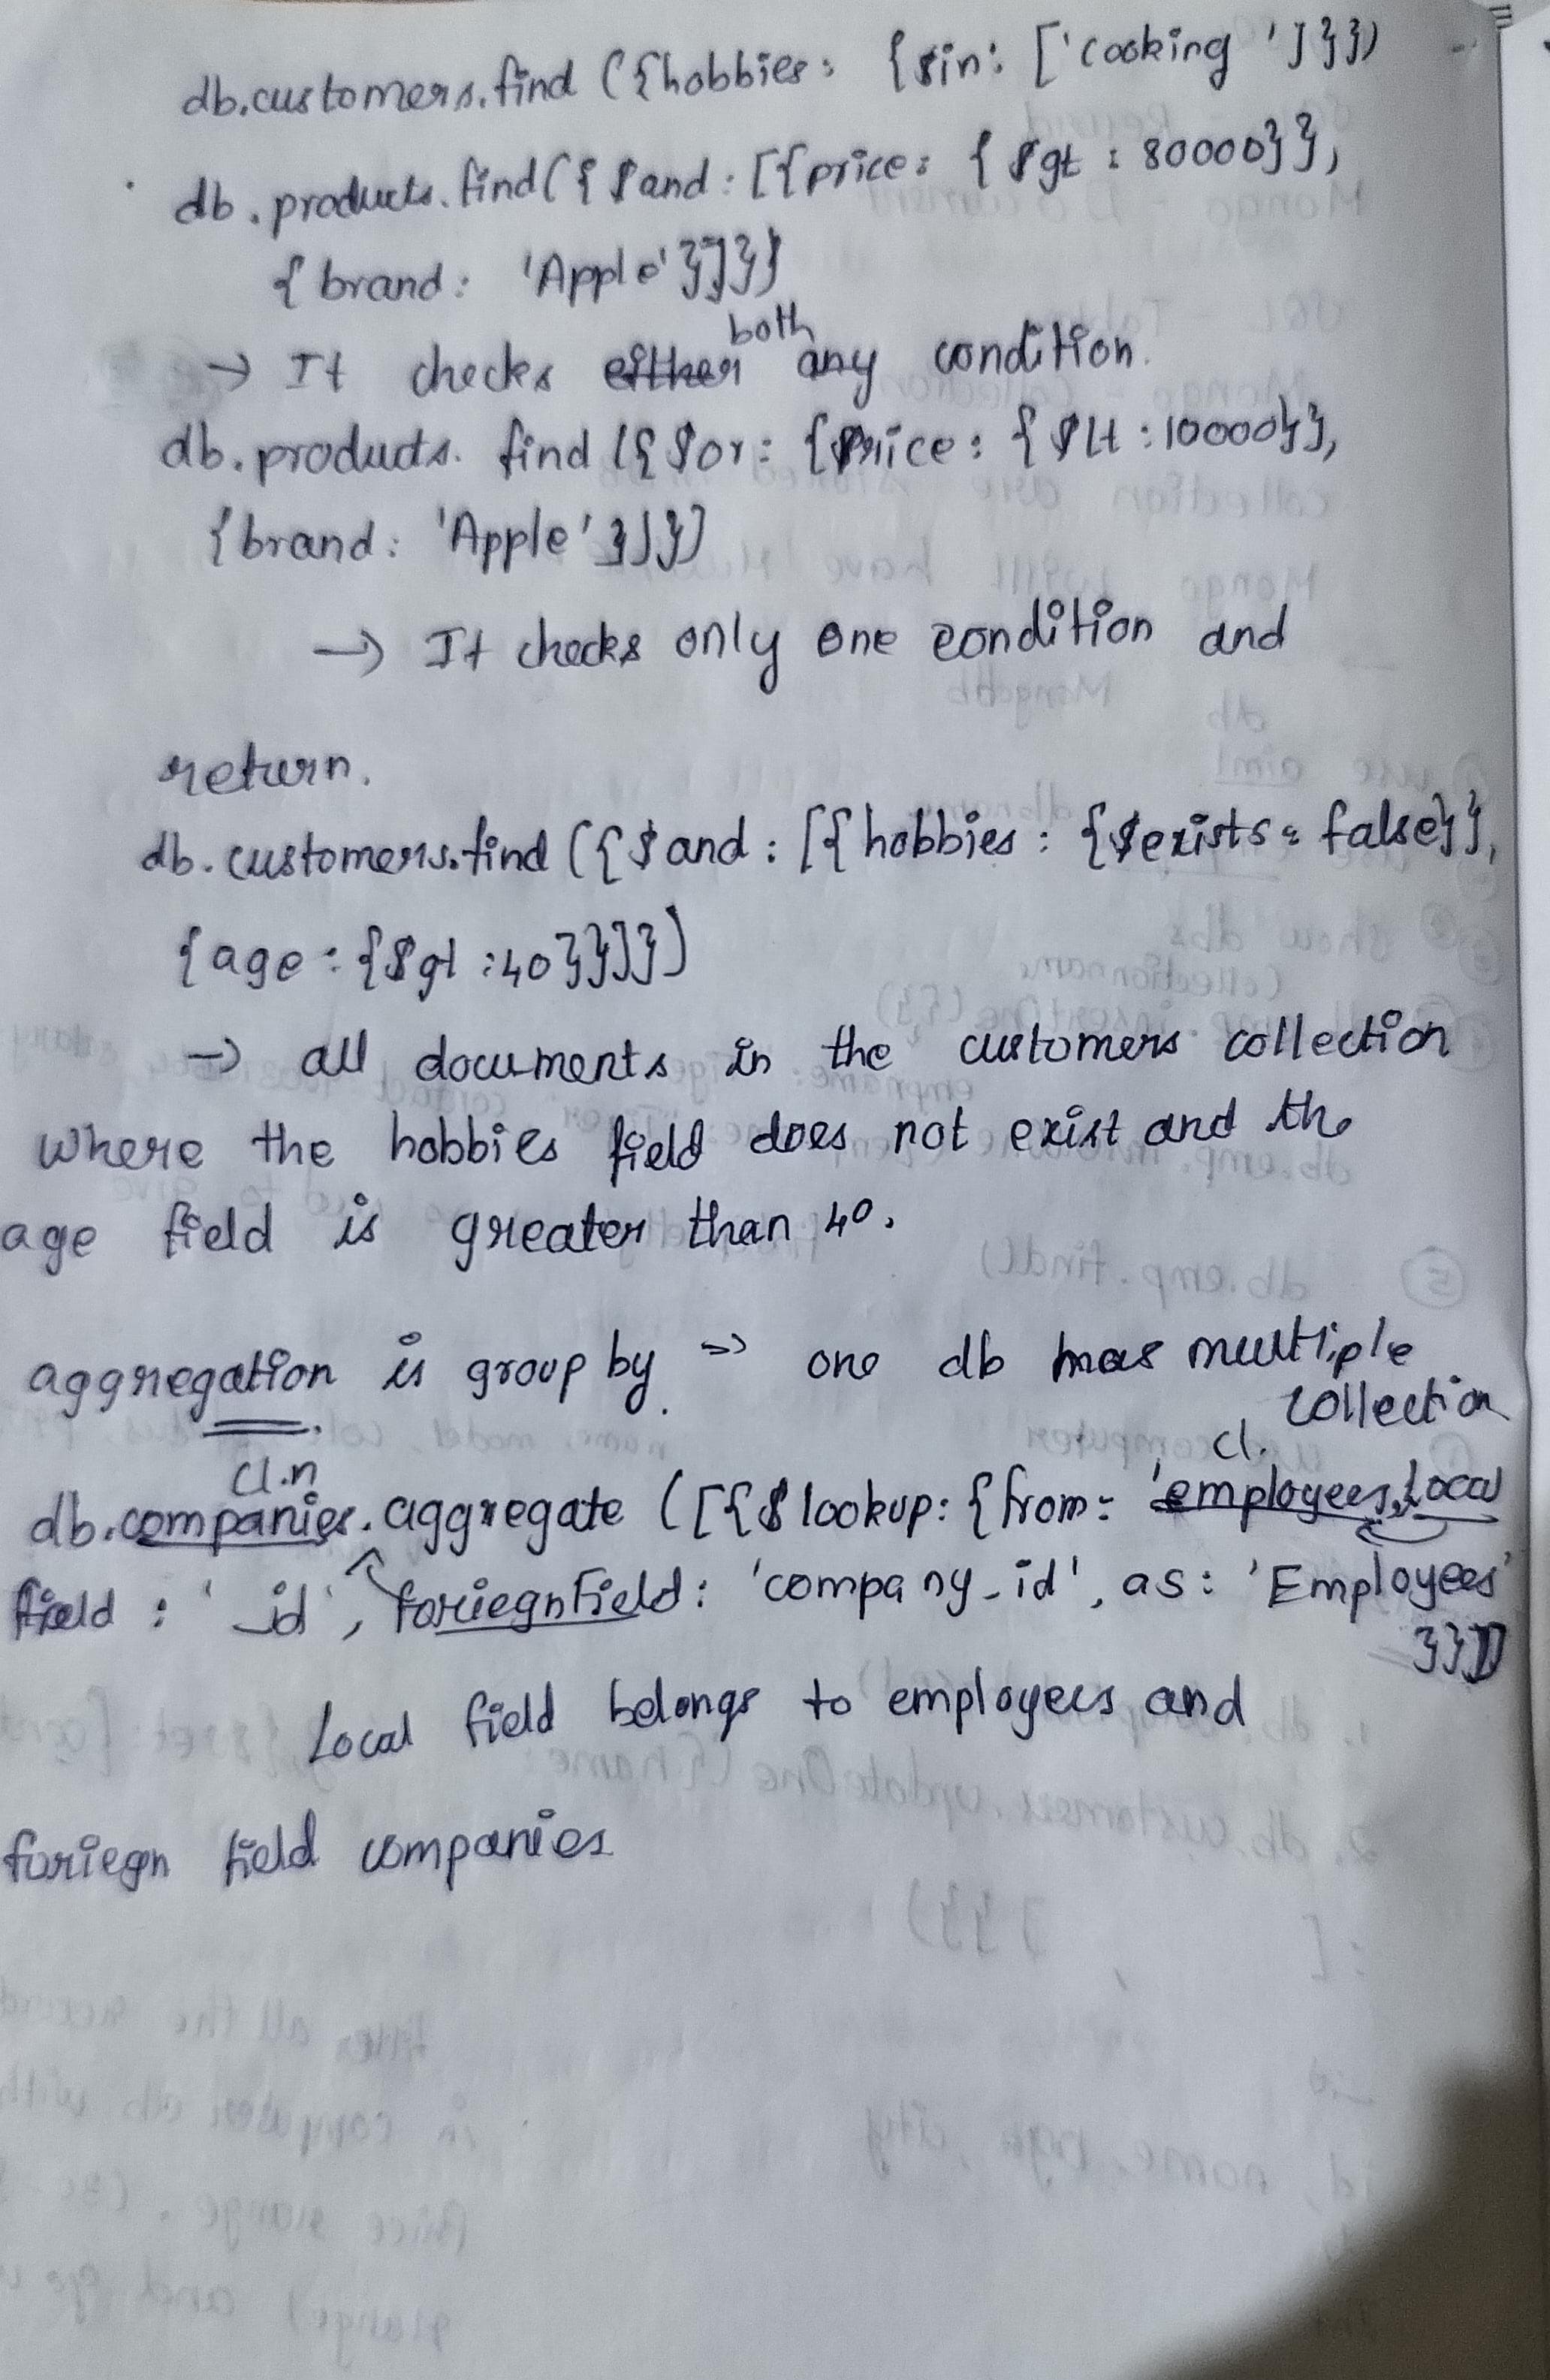 db.customers.find ({hobbies: {$in: ['cooking']}})
db.products.find({$and: [{price: {$gt : 80000}},
{brand: 'Apple'}]})
both
→ It checks either any condition.
db.products. find ({$or: {Price: {$lt : 10000}},
{brand: 'Apple'}]})
→ It checks only one condition and
return.
db.customers.find ({$and : [{hobbies : {$exists: false}},
{age : {$gt : 40}}]})
→ all documents in the customers collection
where the hobbies field does not exist and the
age field is greater than 40.
aggregation is group by. => one db has multiple
collection
cl.n cl.
db.companies.aggregate ([{$lookup: {from: 'employees, Local
field : '_id', foriegnField: 'company_id', as: 'Employees'
}}])
Local field belongs to employees and
foriegn field companies